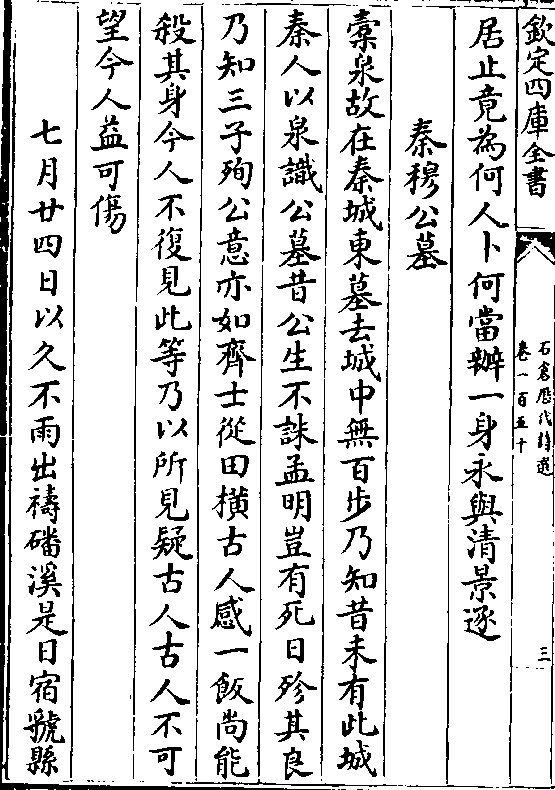 欽定四庫全書
石倉歷代詩選
卷一百五十
三
居止竟為何人卜何當辦一身永與清景逐
秦穆公墓
橐泉故在秦城東墓去城中無百步乃知昔未有此城
秦人以泉識公墓昔公生不誅孟明豈有死日殄其良
乃知三子殉公意亦如齊士從田橫古人感一飯尚能
殺其身今人不復見此等乃以所見疑古人古人不可
望今人益可傷
七月廿四日以久不雨出禱磻溪是日宿虢縣